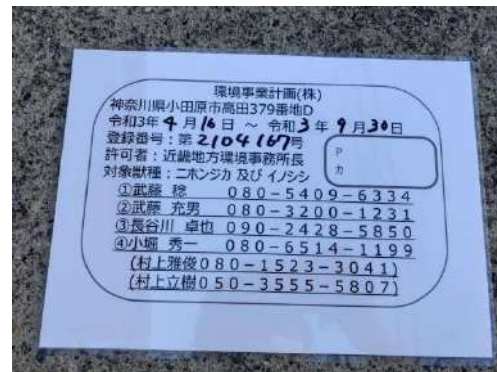 環境事業計画(株)
神奈川県小田原市高田379番地D
令和3年4月16日 ~ 令和3年9月30日
登録番号:第2104167号
許可者:近畿地方環境事務所長
対象獣種:ニホンジカ 及び イノシシ
P
カ
①武藤 稔 080-5409-6334
②武藤 充男 080-3200-1231
③長谷川 卓也 090-2428-5850
④小堀 秀一 080-6514-1199
(村上雅俊080-1523-3041)
(村上立樹050-3555-5807)